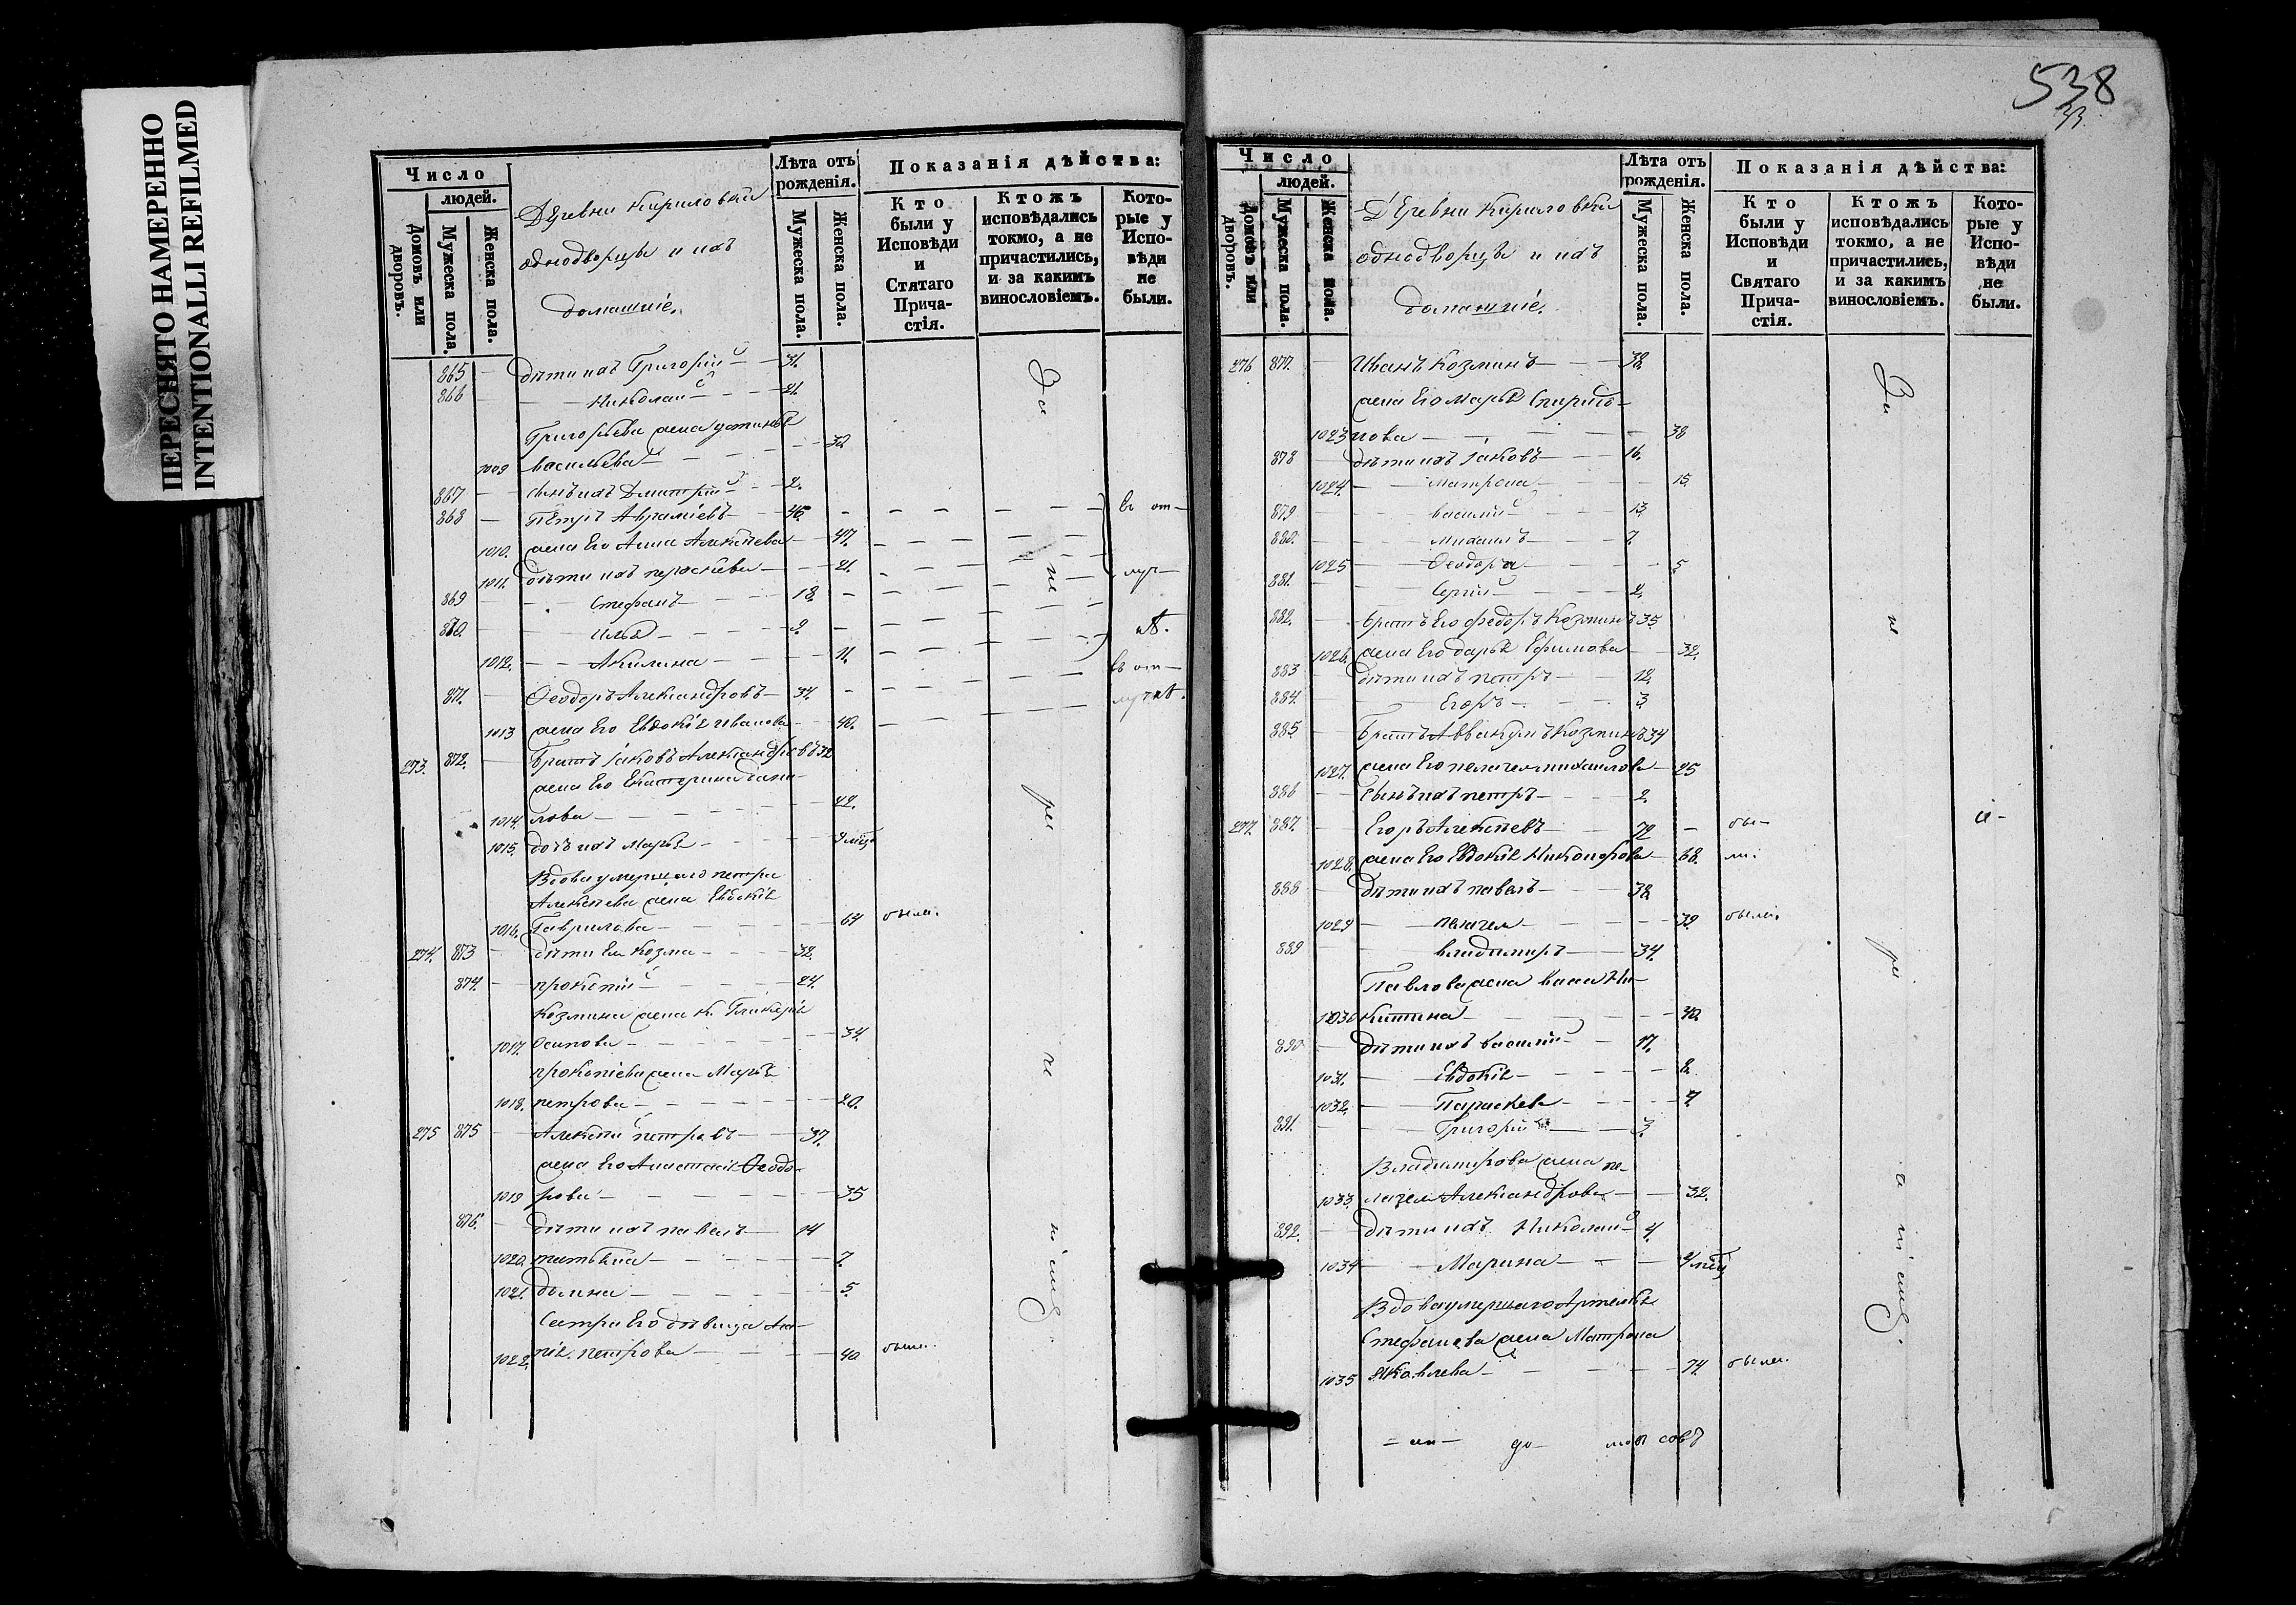 ПЕРЕСНЯТО НАМЕРЕННО
INTENTIONALLI REFILMED
Число
людей.
Домовъ или дворовъ.
Мужеска пола.
Женска пола.
Деревни Кириловки
однодворцы и ихъ
домашніе.
Лѣта отъ рожденія.
Мужеска пола.
Женска пола.
Показанія дѣйства:
Кто были у Исповѣди и Стятаго Прича-стія.
Ктожъ исповѣдались токмо, а не причастились, и за какимъ винословіемъ.
Кото-рые у Испо-вѣди не были.
865 — дѣти ихъ Григорій — 31.
866 — Николай — 21.
Григорьева жена устинья
1009 васильева — 30
867 — сынъ ихъ Дмитрій — 2.
868 — Петръ Авраміевъ — 46. въ от-
1010. жена Его Анна Алексѣева — 47.
1011. дѣти ихъ параскева — 21. луч-
869 — Стефанъ — 18.
870. — илья — 9. кѣ.
1012. — Акилина — 11.
871. — Ѳеодоръ Александровъ — 34. въ от-
1013 жена Его Евдокія иванова — 40. лучкѣ.
273. 872. — братъ Іаковъ Александровъ 32
жена Его Екатерина дани-
1014. лова — 42.
1015. дочь ихъ Марья — 9 мѣц
Вдова умершаго петра
Алексѣева жена Евдокія
1016. Гаврилова — 64 была.
274. 873 — дѣти Ея Козма — 32.
874. — прокопій — 24.
Козмина жена Гликерія
1017. Осипова — 34.
прокопіева жена Марья
1018. петрова — 20.
275 875 — Алексѣй петровъ — 37.
жена Его Анастасія Ѳеодо-
1019 рова — 35
876. — дѣти ихъ павелъ — 14
1020. татьяна — 7.
1021. домна — 5.
Сестра Его дѣвица
1022. петрова — 40 была.
За не ра чи ніемъ.
538
33
Число
людей.
Домовъ или дворовъ.
Мужеска пола.
Женска пола.
Деревни Кириловки
однодворцы и ихъ
домашніе.
Лѣта отъ рожденія.
Мужеска пола.
Женска пола.
Показанія дѣйства:
Кто были у Исповѣди и Святаго Прича-стія.
Ктожъ исповѣдались токмо, а не причастились, и за какимъ винословіемъ.
Кото-рые у Испо-вѣди не были.
276 877. — Иванъ Козминъ — 38.
жена Его Марья Спиридо-
1023 нова — 38
878 дѣти ихъ Іаковъ — 16.
1024. — Матрона — 15.
879 — василій — 13.
880. — михаилъ — 7.
1025 — Ѳеодора — 5
881. — Сергій — 2.
882. — братъ Его федоръ Козминъ 35
1026. жена Его дарья Ефимова — 32.
883 дѣти ихъ петръ — 12.
884. — Егоръ — 3
885 — братъ Аввакумъ Козминъ 34
1027. жена Его пелагея михаилова — 25
886 — сынъ ихъ петръ — 2.
277. 887. — Егоръ Алексѣевъ — 72 — бы-
1028. жена Его Евдокія Никонорова — 68. ли.
888 — дѣти ихъ павелъ — 38.
1029 — пелагея — 39. была.
889 — владимиръ — 34.
Павлова жена васса Ни-
1030 китина — 40.
890. — дѣти ихъ василій — 17.
1031. — Евдокія — 8.
1032. — Параскева — 7.
891. — Григорій — 3.
Владимирова жена пе-
1033. лагея Александрова — 32.
892. — дѣти ихъ Николай — 4.
1034 — Марина — мѣц
Вдова умершаго Артемья
Стефанова жена Матрона
1035 яковлева — 74. была.
За не ра ч ніемъ.